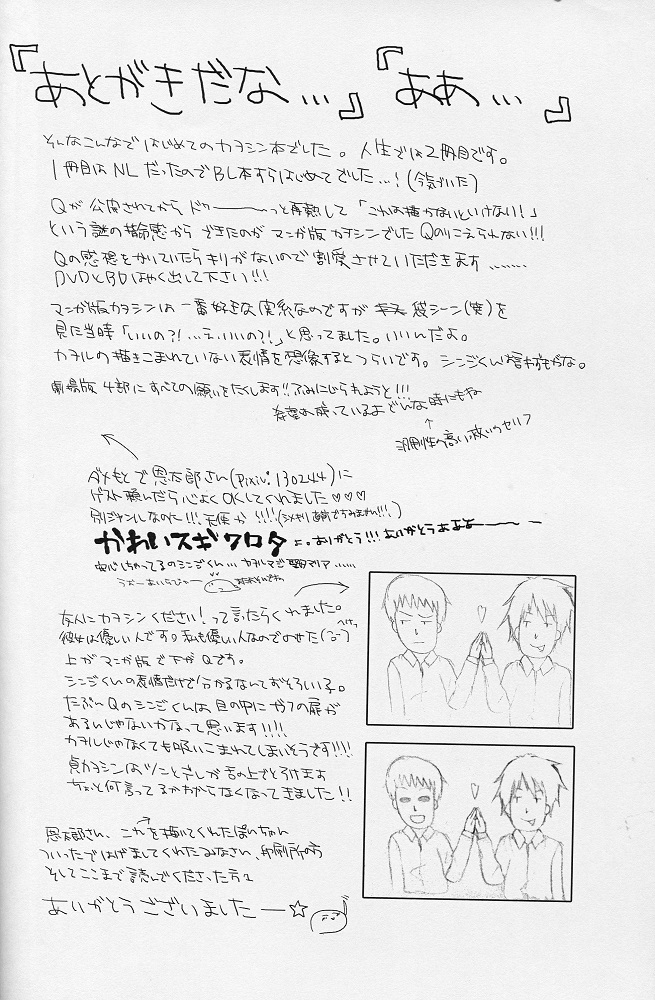 『あとがきだな…』『ああ…』
そんなこんなではじめてのカヲシン本でした。人生では2冊目です。
1冊目はNLだったのでBL本すらはじめてでした…!(今気づいた)
Qが公開されてからドゥーーーっと再熱して「これは描かないといけない!」
という謎の指令感からできたのがマンガ版カヲシンでしたQのりこえられない!!!
Qの感想をかいていたらキリがないので割愛させていただきます……
DVDとBDはやく出して下さい!!!
マンガ版カヲシンは一番好きな関係なのですが
見た当時「いいの?!…え、いいの?!」と思ってました。いいんだよ。
カヲルの描きこまれていない表情を想像するとつらいです。シンジくん
劇場版4部にすべての願いをたくします!!ふみにじられようと!!!
希望は残っているよどんな時にもね
汎用性の高い救いのセリフ
ダメもとで恩太郎さん(pixiv:130244)に
ゲスト頼んだら心よくOKしてくれました♡♡♡
別ジャンルなのに!!!天使か!!!!(シメキリ直前ですみません!!!)
かわいスギワロタ ありがとう!!!ありがとうあああーーー
安心しちゃってるのシンジくん…カヲルマジ聖母マリア……
友人にカヲシンください!って言ったらくれました。
彼女は優しい人です。私も優しい人なのでのせた
上がマンガ版で下がQです。
シンジくんの表情だけで分かるなんておそろしい子。
たぶんQのシンジくんは目の中にガフの扉が
あるんじゃないかなって思います!!!!
カヲルじゃなくても吸いこまれてしまいそうです!!!!
貞カヲシンはツンとデレが舌の上でとろけますよ
ちょっと何言ってるかわからなくなってきました!!
恩太郎さん、これを描いてくれたぽいちゃん
ついったではげましてくれたみなさん、印刷所の方
そしてここまで読んでくださった方々
ありがとうございましたー☆